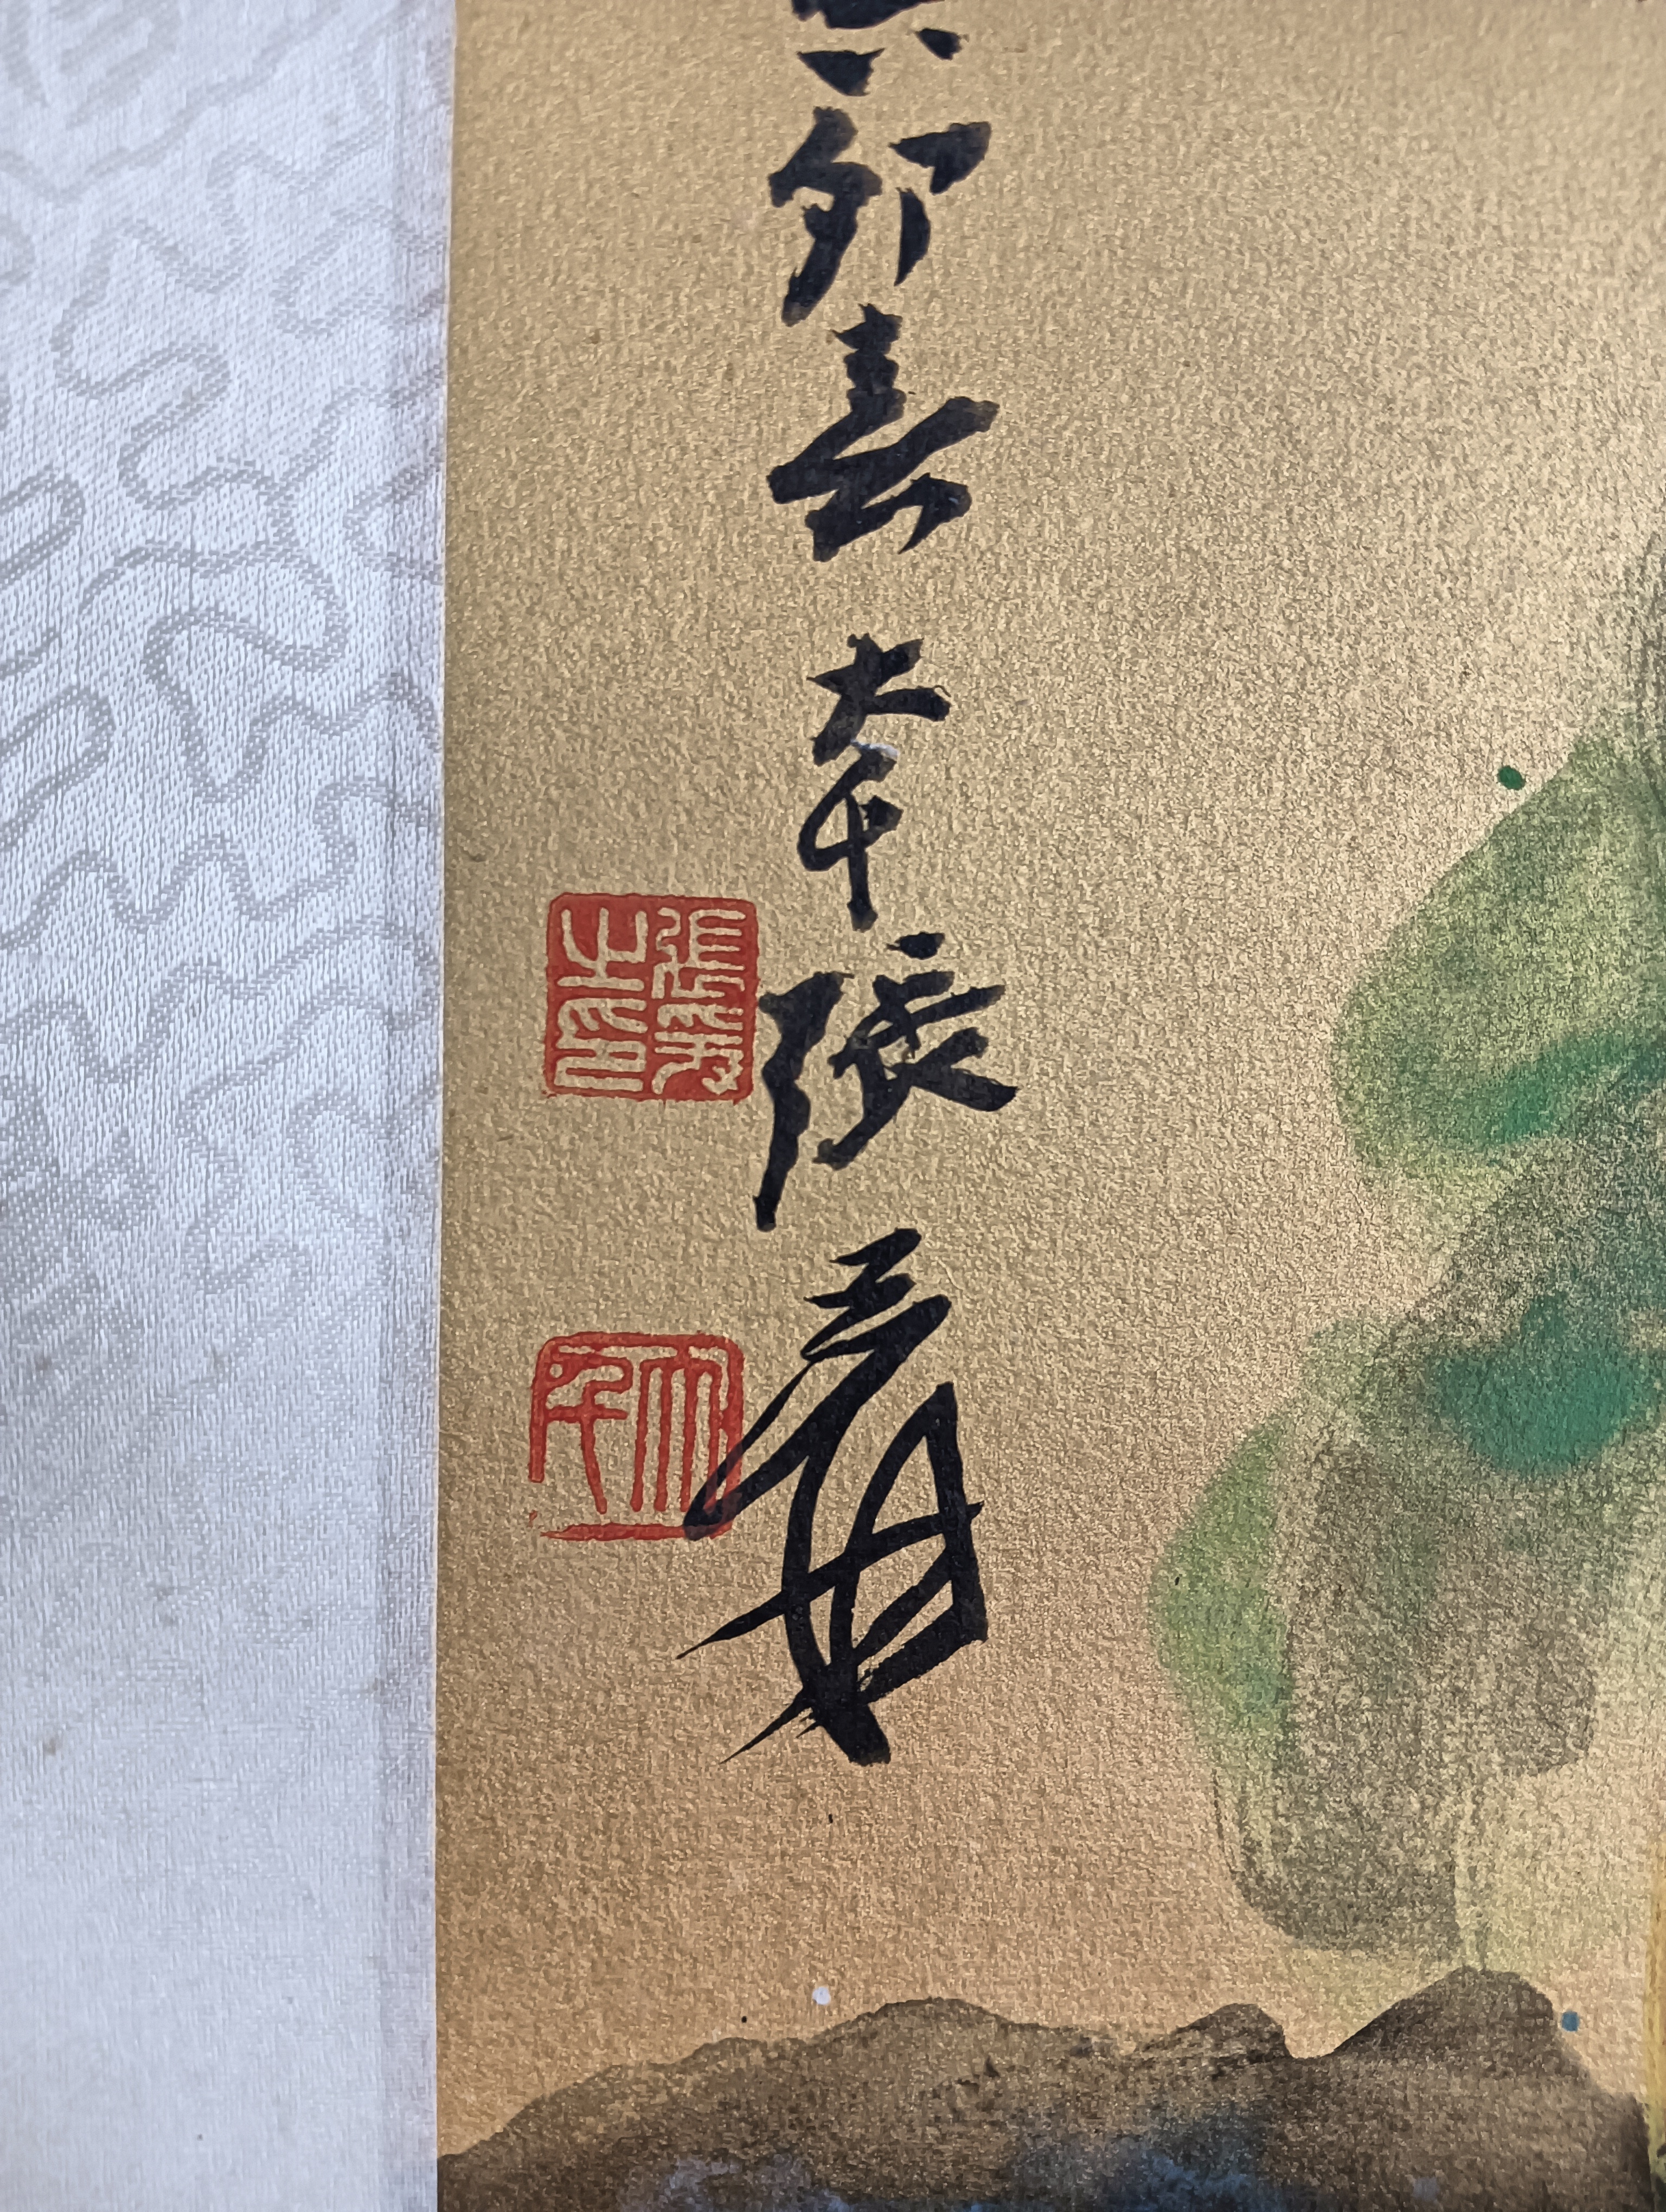 卯春 大千張爰
張爰之印
大千